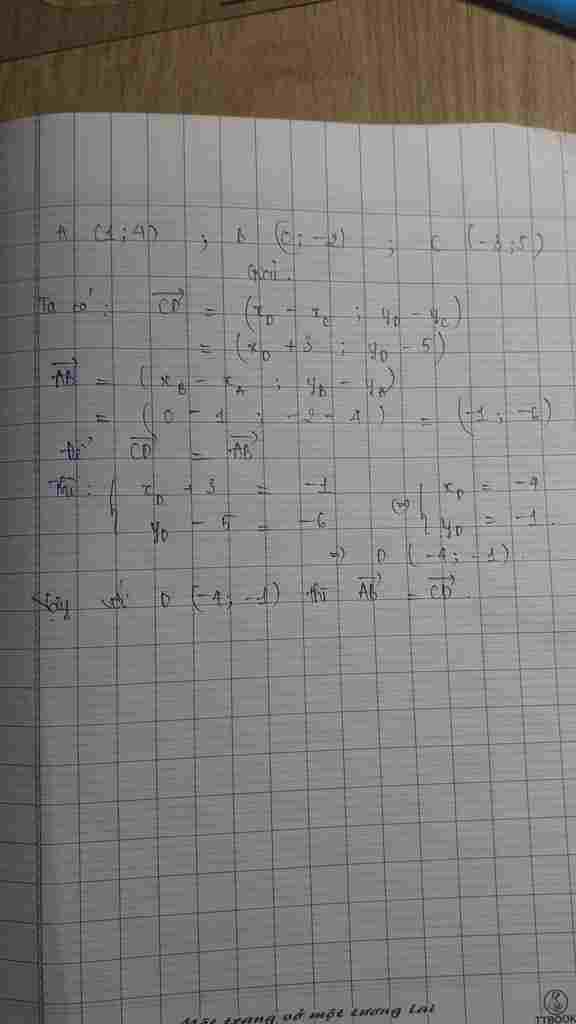 A (1 ; 4) ; B (0 ; -2) ; C (-3 ; 5)
Giải.
Ta có : CD→ = (x_D - x_C ; y_D - y_C)
= (x_D + 3 ; y_D - 5)
AB→ = (x_B - x_A ; y_B - y_A)
= (0 - 1 ; -2 - 4) = (-1 ; -6)
Để CD→ = AB→
Thì : { x_D + 3 = -1 (=) { x_D = -4
y_D - 5 = -6 y_D = -1.
=) D (-4 ; -1).
Vậy với D (-4 ; -1) thì AB→ = CD→.
Một trang vở một tương lai
TTBOOK